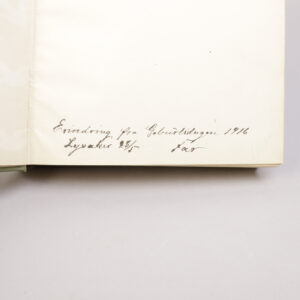 Erindring fra Geburtsdagen 1916
Lysaker 28/5 Far